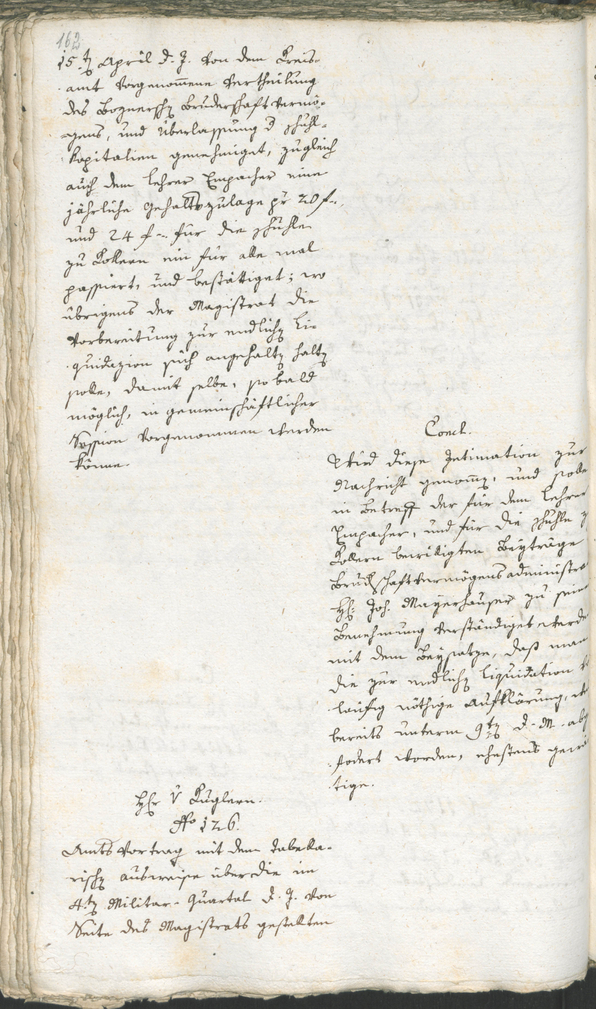 162
15. tn April d. J. von dem Kreis-
amt vorgenom̄ene Vertheilung
des Boznerschn Bruderschaftvermö-
gens, und Überlassung d Schuhl-
kapitalien genehmiget, zugleich
auch dem Lehrer Empacher eine
jährliche Gehaltszulage pr 20 f.,
und 24 f. für die Schuhle
zu Kollern ein für alle mal
passiert, und bestättiget; wo
übrigens der Magistrat die
Vorbereitung zur endlichn Li-
quidazion sich angehaltn haltn
solle, damit selbe, so bald
möglich, in gemeinschäftlicher
Session vorgenommen werden
könne.
Concl.
Wird diese Intimation zur
Nachricht genom̄n, und solle
in Betreff der für dem Lehrer
Empacher, und für die Schuhle z
Kollern bewilligten Beyträge
Brudschaftvermögensadministra
Hr: Joh. Mayrhauser zu seine
Benehmung verständiget werde
mit dem Beysatze, daß man
die zur endlichn Liquidation
läufig nöthige Aufklärung,
bereits unterm 9tn d. M. abg
fodert worden, ehestens gewä
tige.
Hr v Kuglern.
No 126.
Amtsvortrag mit dem Tabella-
rischn Ausweise über die im
4tn Militar-Quartal d. J. von
Seite des Magistrats gestellten